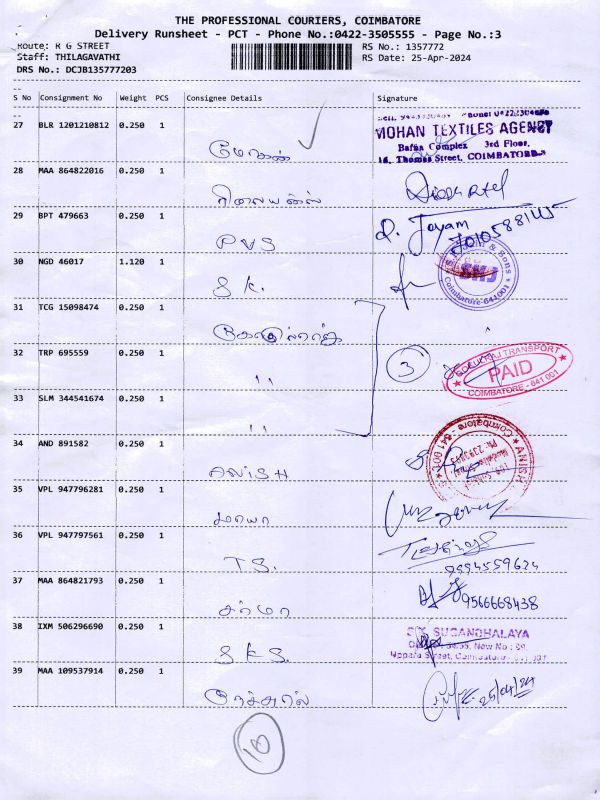 THE PROFESSIONAL COURIERS, COIMBATORE
Delivery Runsheet - PCT - Phone No.:0422-3505555 - Page No.:3
Route: R G STREET RS No.: 1357772
Staff: THILAGAVATHI RS Date: 25-Apr-2024
DRS No.: DCJB135777203
S No Consignment No Weight PCS Consignee Details Signature
27 BLR 1201210812 0.250 1
மோகன்
MOHAN TEXTILES AGENCY
Bafna Complex 3rd Floor,
16, Thomas Street, COIMBATORE
28 MAA 864822016 0.250 1
29 BPT 479663 0.250 1
PVS
D. Jayam
30 NGD 46017 1.120 1
S K.
& Sons
SHJ
Coimbatore-641001
31 TCG 15098474 0.250 1
32 TRP 695559 0.250 1
"
3
TRANSPORT
PAID
COIMBATORE - 641 001
33 SLM 344541674 0.250 1
"
34 AND 891582 0.250 1
அனிஷ்
ANISH
Coimbatore - 641 001
35 VPL 947796281 0.250 1
மாயா
36 VPL 947797561 0.250 1
T.S.
9994559624
37 MAA 864821793 0.250 1
சர்மா
9566668438
38 IXM 506296690 0.250 1
S K S.
SUGANDHALAYA
Uppara Street, Coimbatore
39 MAA 109537914 0.250 1
25/04/24
10